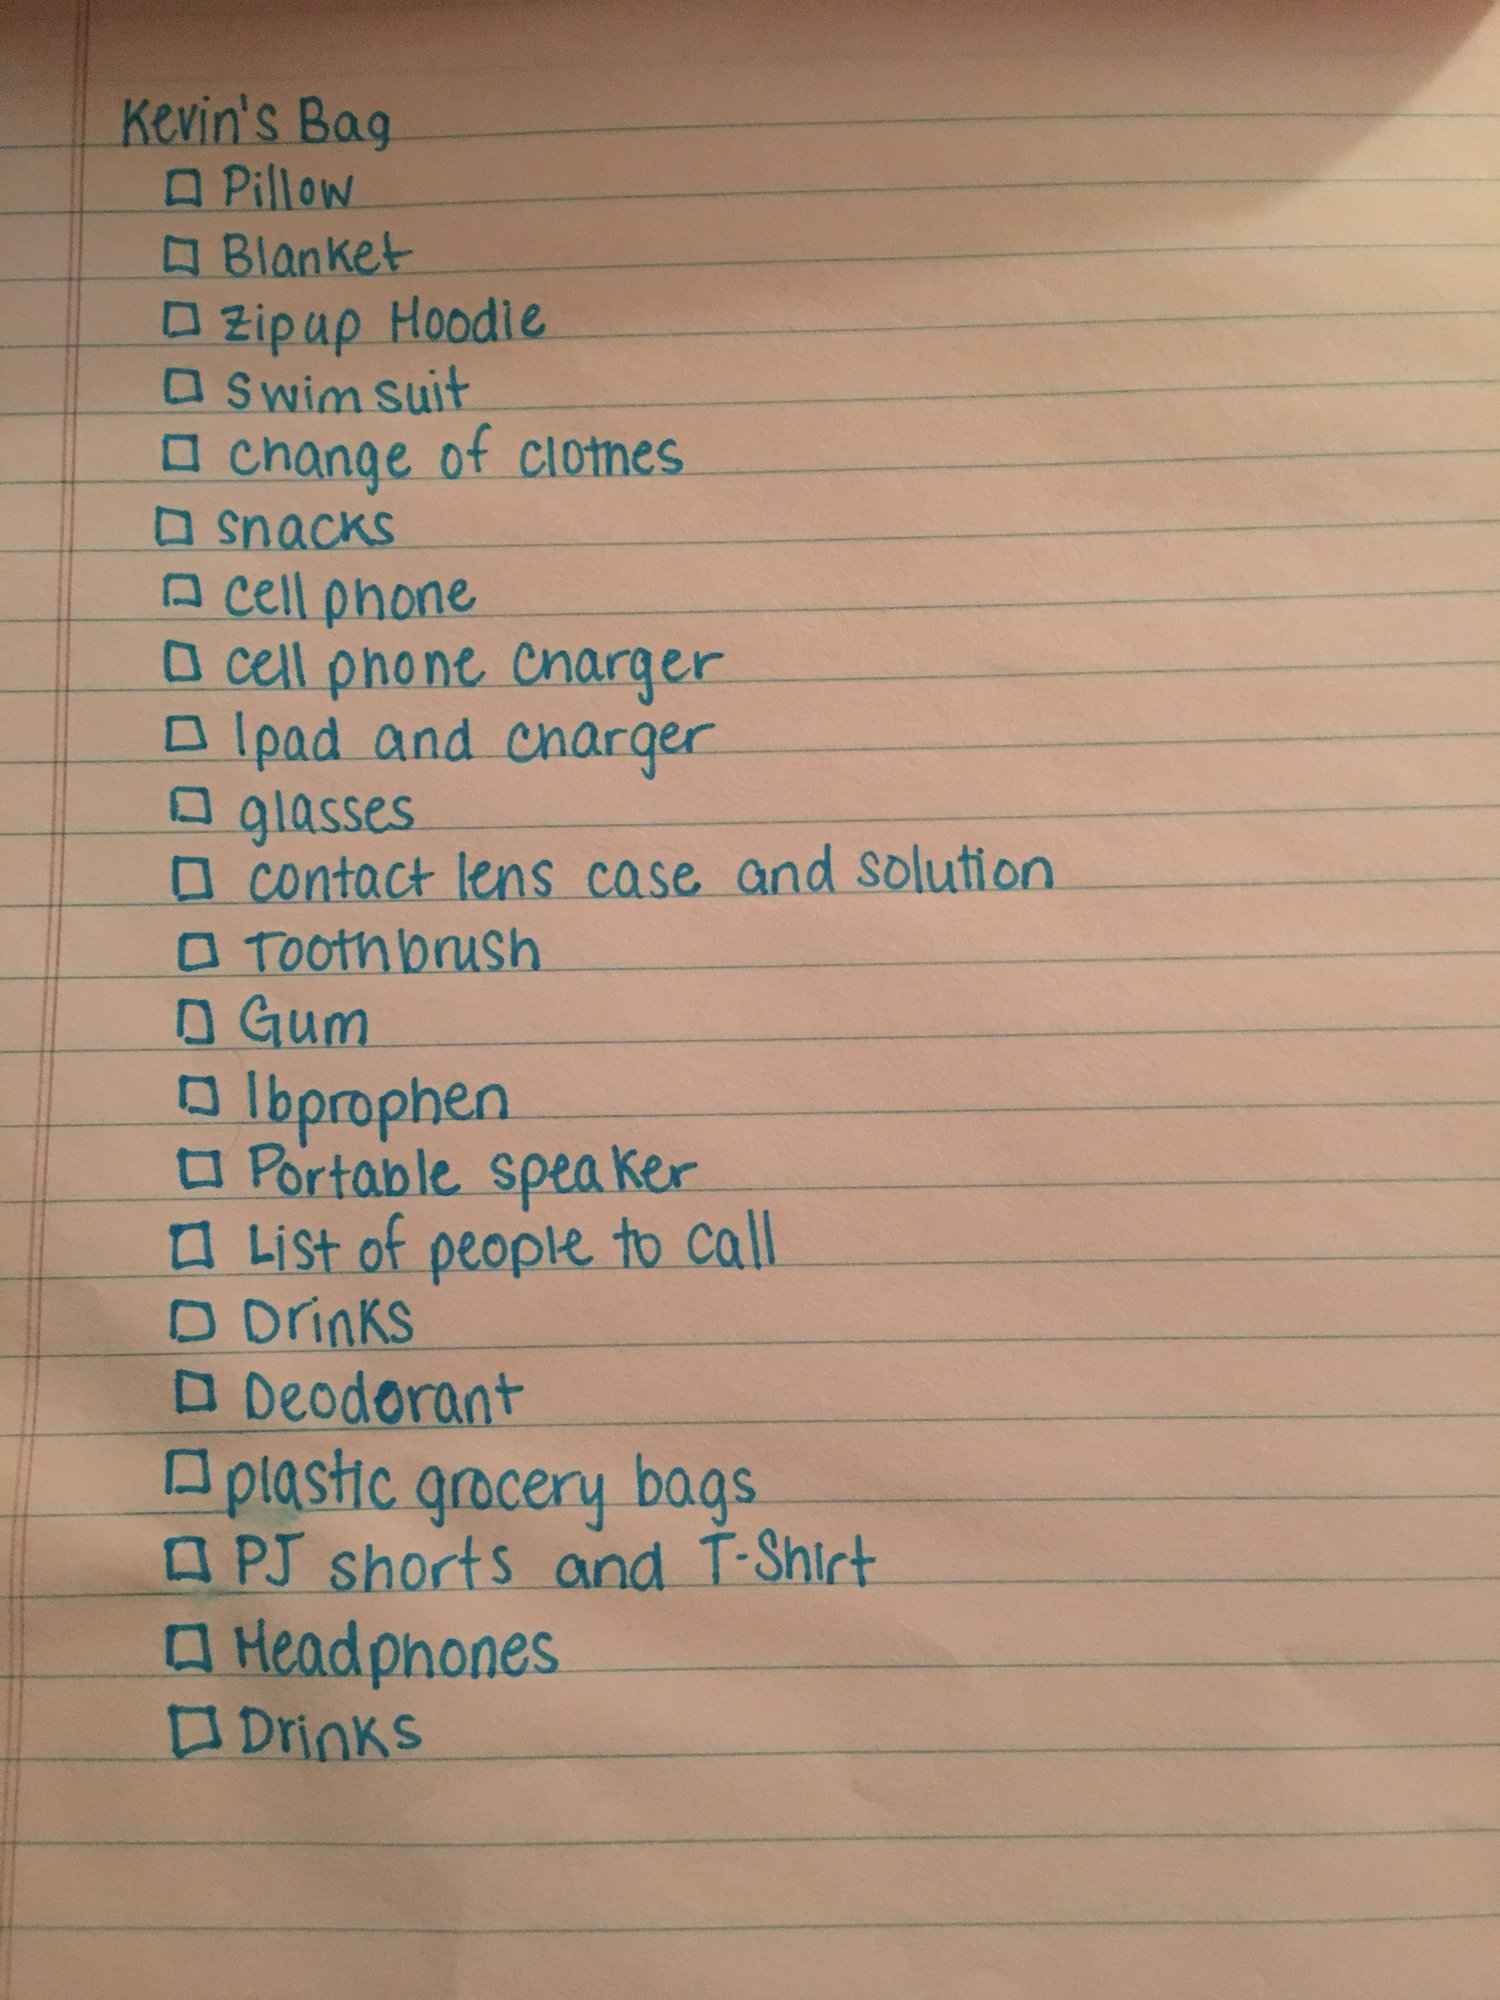 Kevin's Bag
☐ Pillow
☐ Blanket
☐ Zipup Hoodie
☐ Swim suit
☐ change of clothes
☐ snacks
☐ cell phone
☐ cell phone charger
☐ Ipad and charger
☐ glasses
☐ contact lens case and solution
☐ Toothbrush
☐ Gum
☐ Ibprophen
☐ Portable speaker
☐ List of people to call
☐ Drinks
☐ Deodorant
☐ plastic grocery bags
☐ PJ shorts and T-Shirt
☐ Headphones
☐ Drinks